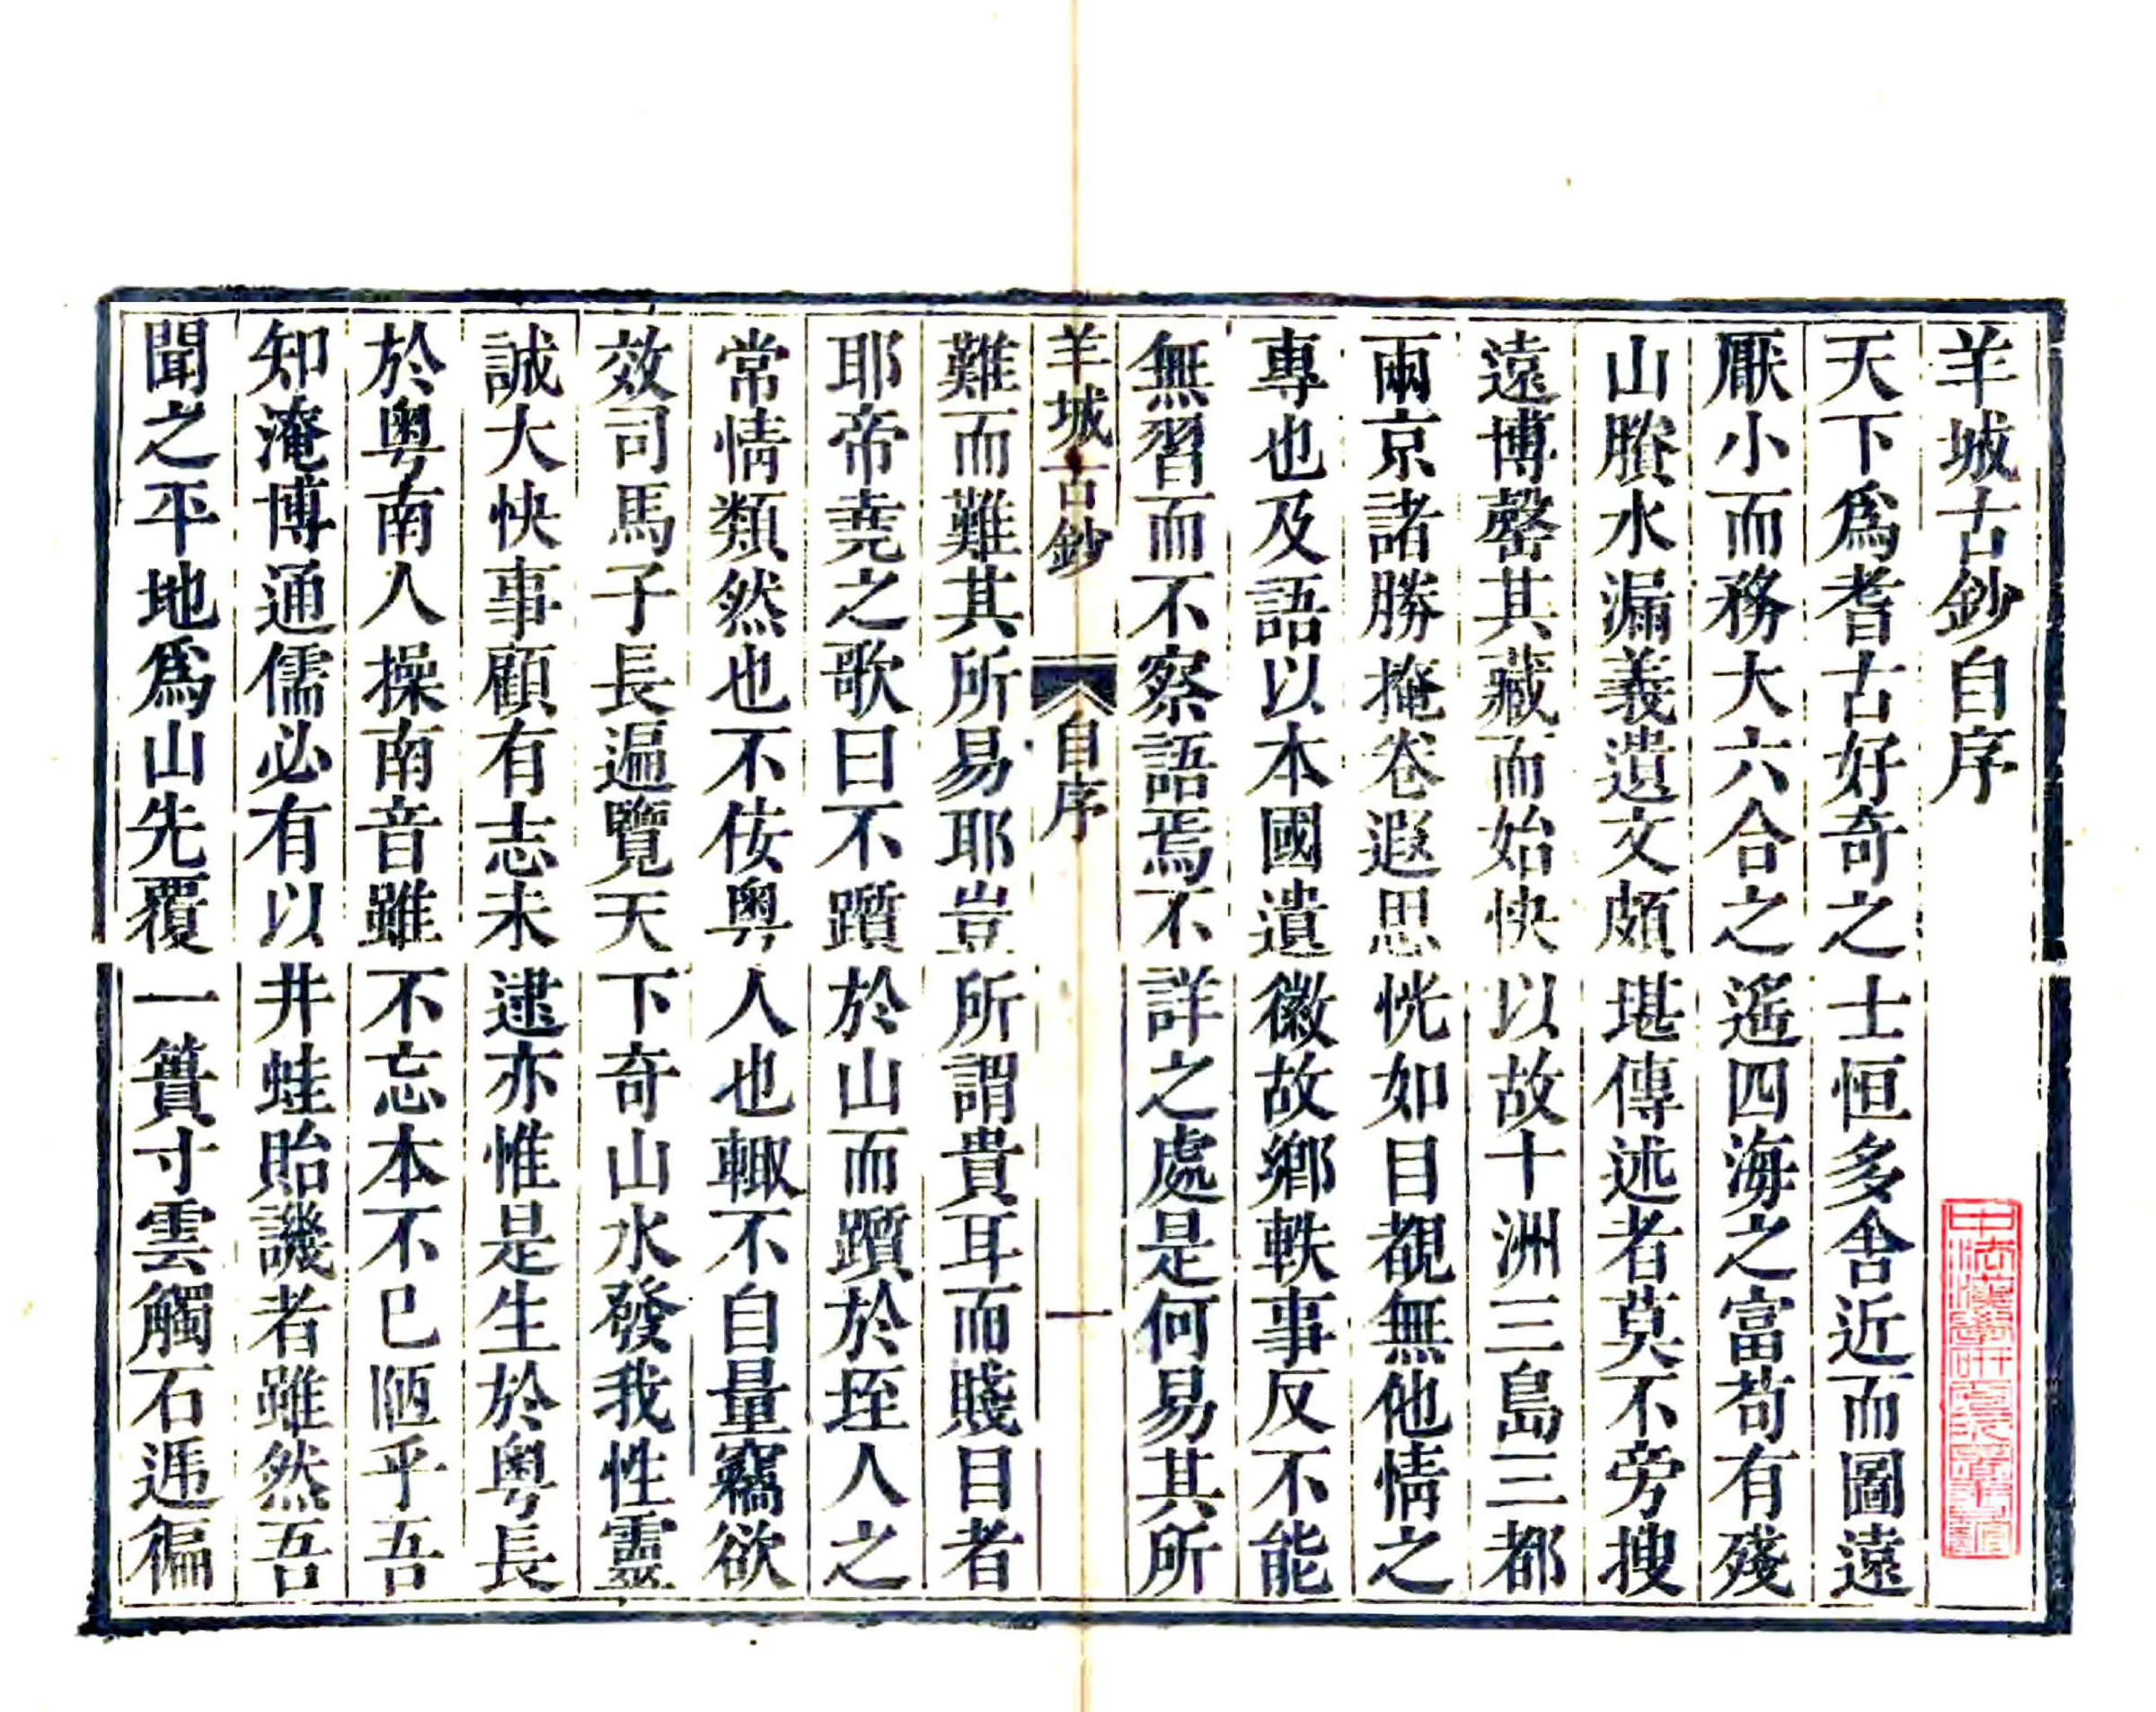 羊城古鈔自序
天下爲耆古好奇之士恒多舍近而圖遠
厭小而務大六合之遙四海之富茍有殘
山賸水漏義遺文頗堪傳述者莫不旁搜
遠博罄其藏而始快以故十洲三島三都
兩京諸勝掩卷遐思恍如目覩無他情之
專也及語以本國遺徽故鄉軼事反不能
無習而不察語焉不詳之處是何易其所
羊城古鈔
自序
一
難而難其所易耶豈所謂貴耳而賤目者
耶帝堯之歌曰不躓於山而躓於垤人之
常情類然也不佞粵人也輙不自量竊欲
效司馬子長遍覽天下奇山水發我性靈
誠大快事顧有志未逮亦惟是生於粵長
於粵南人操南音雖不忘本不已陋乎吾
知淹博通儒必有以井蛙貽譏者雖然吾
聞之平地爲山先覆一簣寸雲觸石遍